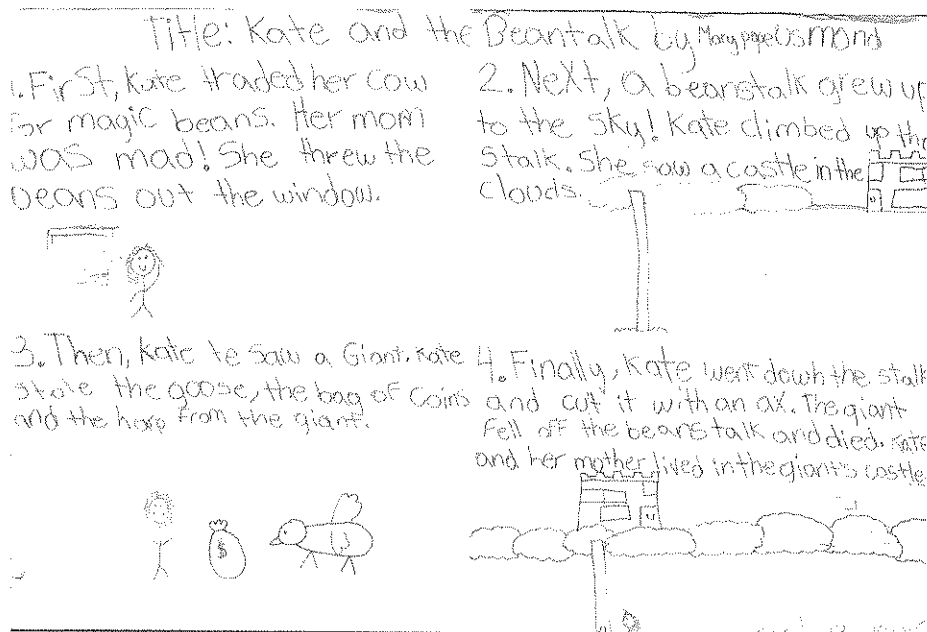 Title: Kate and the Beantalk by Mary pope Osmond
1. First, Kate traded her cow
for magic beans. Her mom
was mad! She threw the
beans out the window.
2. Next, a beanstalk grew up
to the sky! Kate climbed up the
stalk. She saw a castle in the
clouds.
3. Then, Kate te saw a Giant. Kate
stole the goose, the bag of coins
and the harp from the giant.
$
4. Finally, Kate went down the stalk
and cut it with an ax. The giant
fell off the beanstalk and died. Kate
and her mother lived in the giant's castle